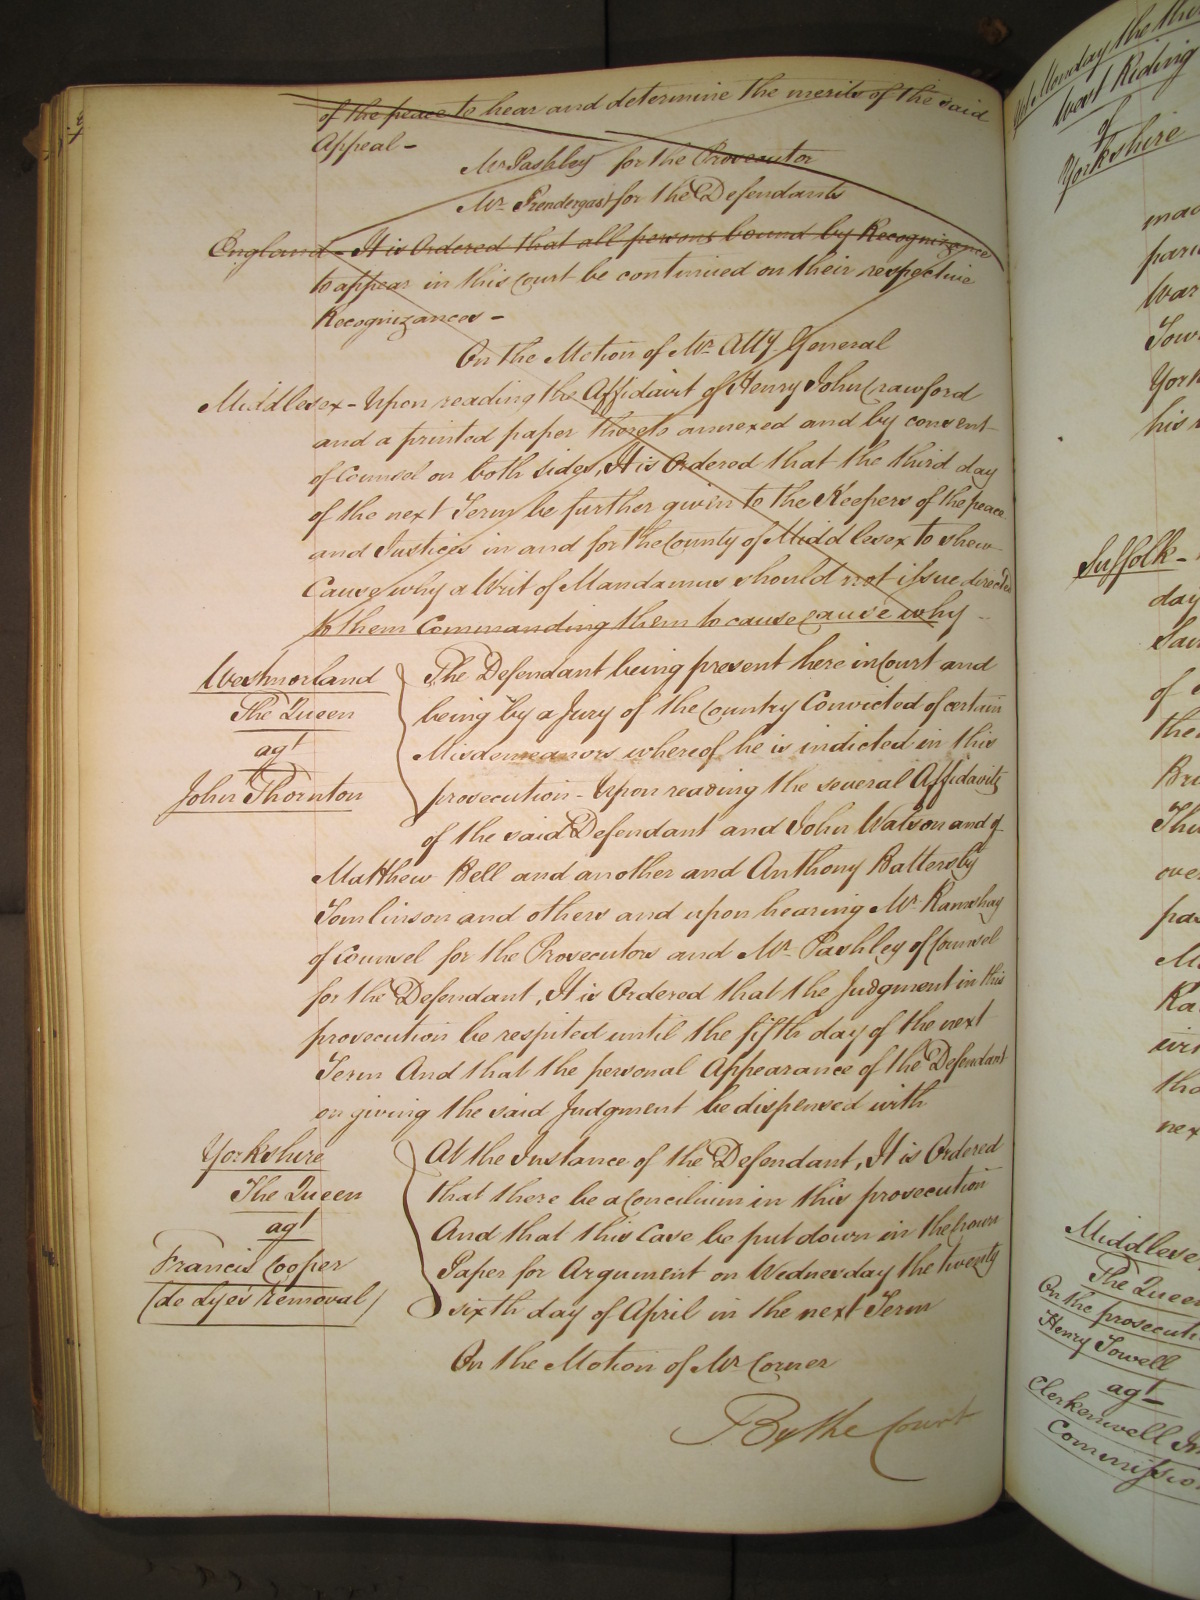 of the peace to hear and determine the merits of the said
Appeal -
Mr Pashley for the Prosecutor
Mr Prendergast for the Defendants
England - It is Ordered that all persons bound by Recognizance
to appear in this Court be continued on their respective
Recognizances -
On the Motion of Mr Atty General
Middlesex - Upon reading the Affidavit of Henry John Crawford
and a printed paper thereto annexed and by consent
of Counsel on both sides, It is Ordered that the third day
of the next Term be further given to the Keepers of the peace
and Justices in and for the County of Middlesex to shew
Cause why a Writ of Mandamus should not issue directed
to them Commanding them to cause cause why -
Westmorland
The Queen
agt
John Thornton
The Defendant being present here in Court and
being by a Jury of the Country Convicted of certain
Misdemeanors whereof he is indicted in this
prosecution - Upon reading the several Affidavits
of the said Defendant and John Watson and of
Matthew Bell and another and Anthony Battersby
Tomlinson and others and upon hearing Mr Ramshay
of Counsel for the Prosecutors and Mr Pashley of Counsel
for the Defendant, It is Ordered that the Judgment in this
prosecution be respited until the fifth day of the next
Term And that the personal Appearance of the Defendant
on giving the said Judgment be dispensed with
Yorkshire
The Queen
agt
Francis Cooper
(de Lyes removal)
At the Instance of the Defendant, It is Ordered
that there be a Concilium in this prosecution
And that this Case be put down in the Crown
Paper for Argument on Wednesday the twenty
sixth day of April in the next Term
On the Motion of Mr Corner
By the Court
Monday the
West Riding
of
Yorkshire
his
Suffolk -
day
of
next
Middlesex
The Queen
On the prosecuti
Henry Towell
agt
Clerkenwell
Commission